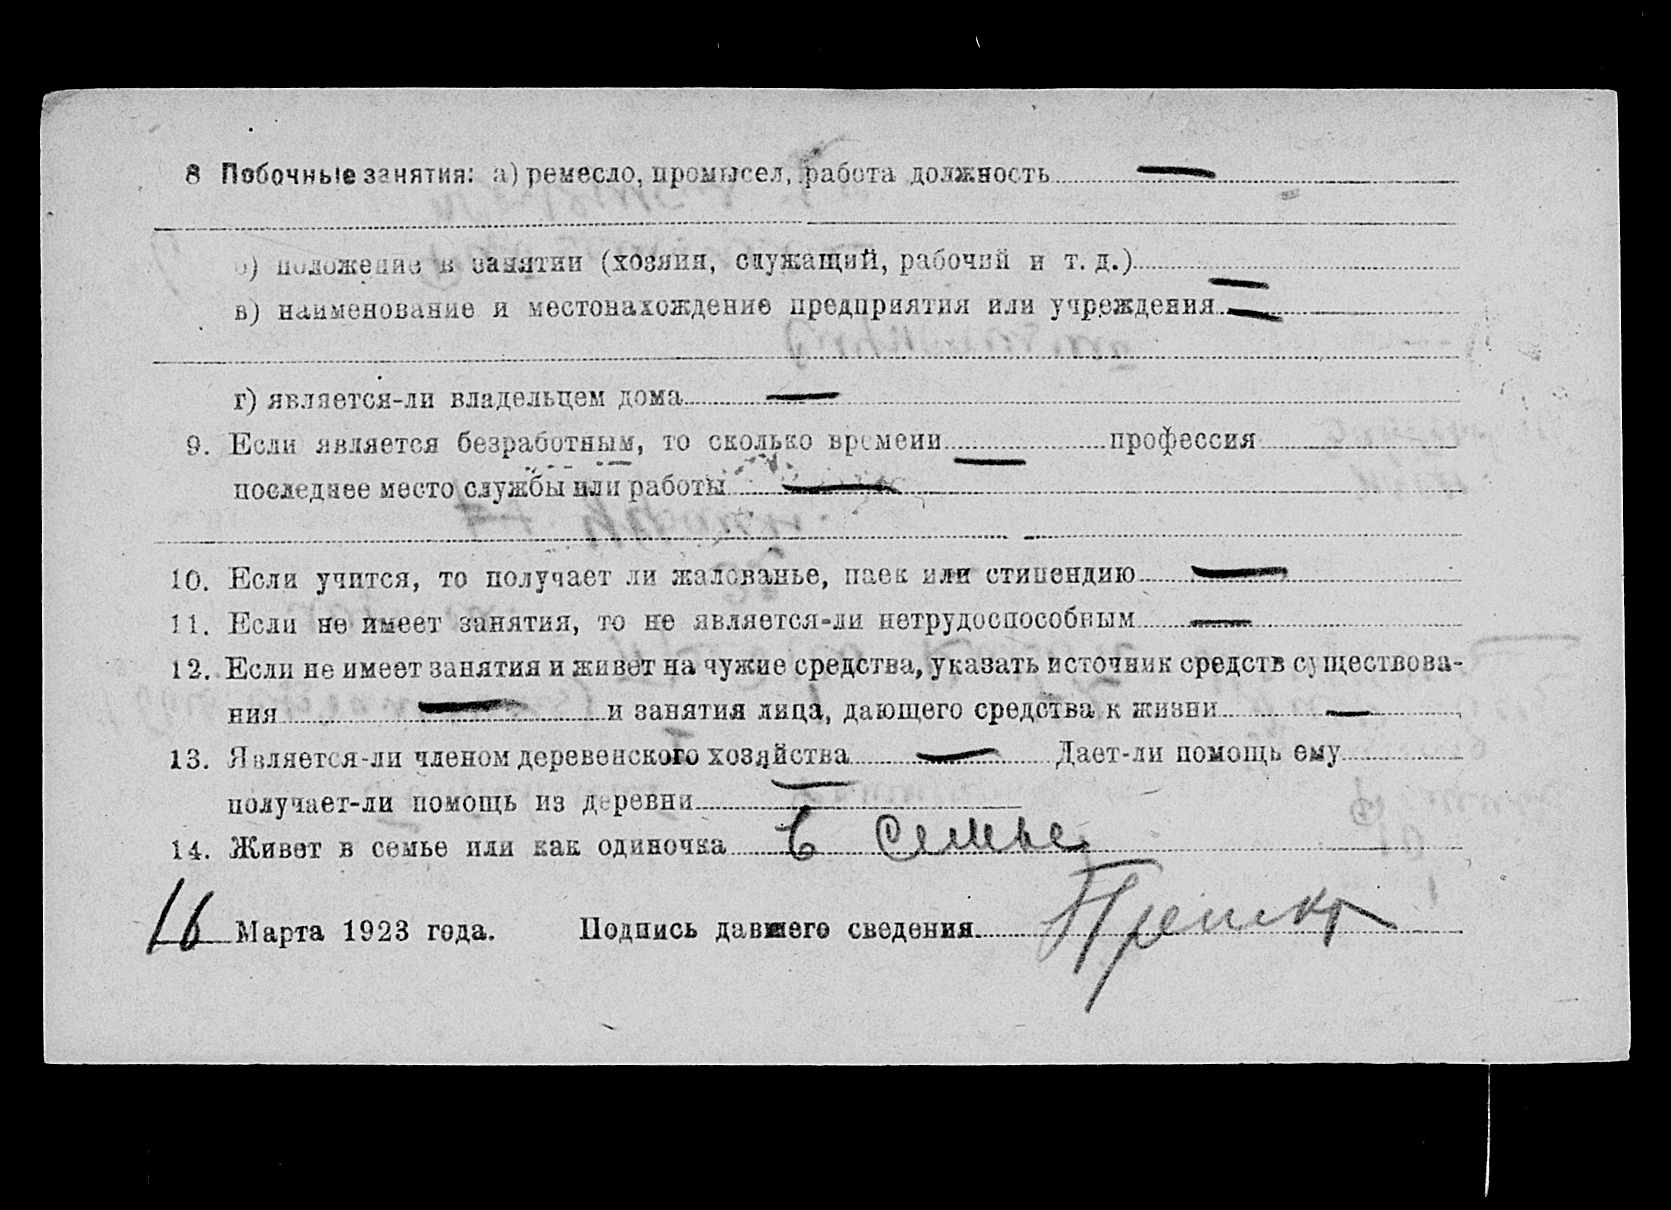 8 Побочные занятия: а) ремесло, промысел, работа должность —
б) положение в занятии (хозяин, служащий, рабочий и т. д.) —
в) наименование и местонахождение предприятия или учреждения —
г) является-ли владельцем дома —
9. Если является безработным, то сколько времени — профессия
последнее место службы или работы —
10. Если учится, то получает ли жалованье, паек или стипендию —
11. Если не имеет занятия, то не является-ли нетрудоспособным —
12. Если не имеет занятия и живет на чужие средства, указать источник средств существова-
ния — и занятия лица, дающего средства к жизни —
13. Является-ли членом деревенского хозяйства — Дает-ли помощь ему
получает-ли помощь из деревни —
14. Живет в семье или как одиночка в семье
16 Марта 1923 года. Подпись давшего сведения